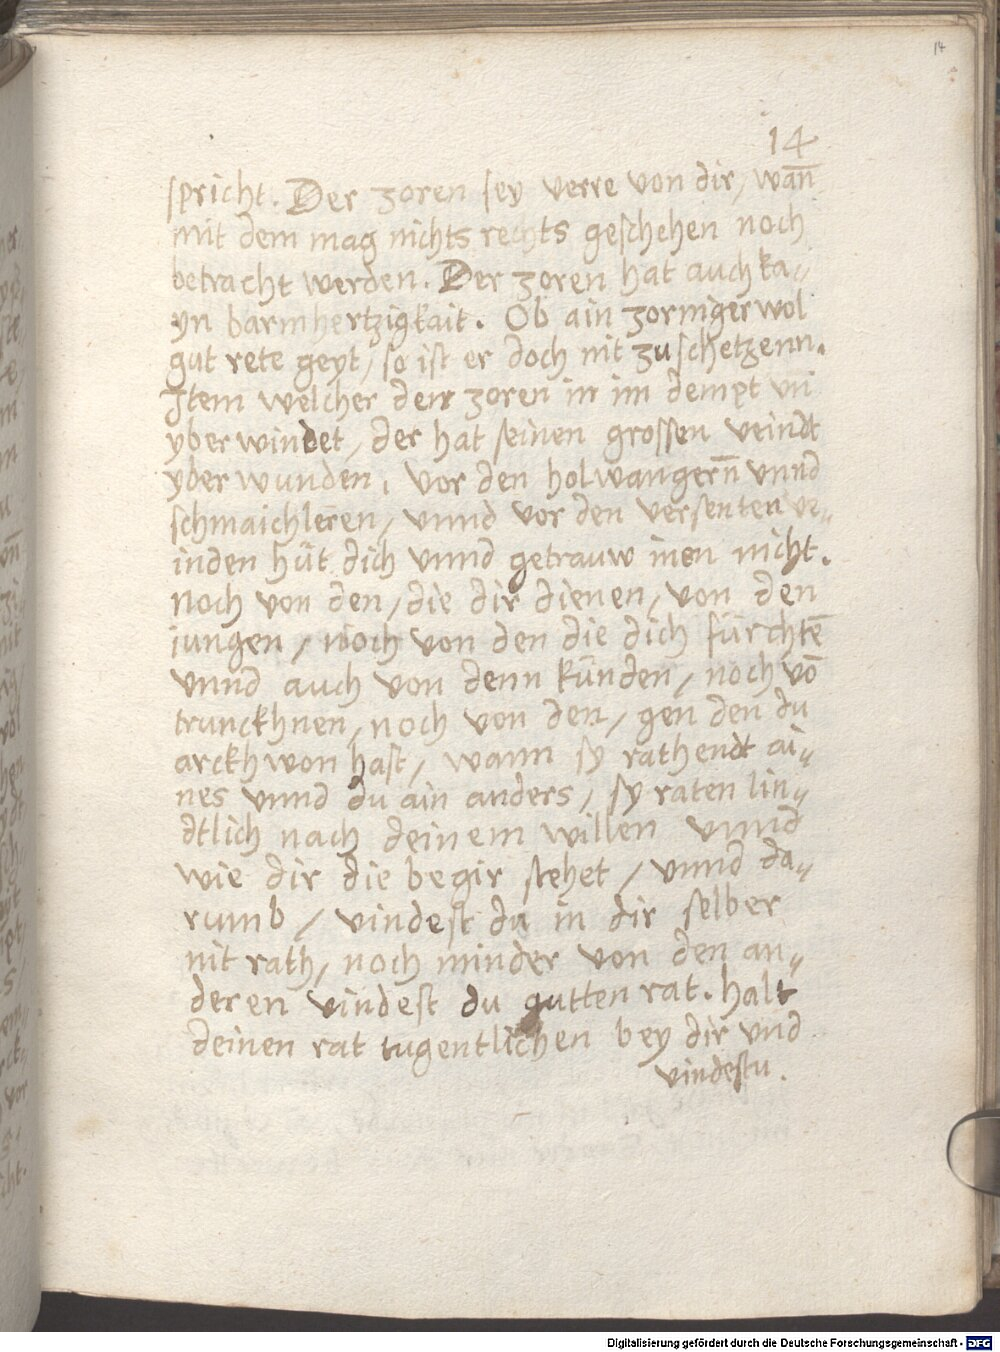 14
14
spricht. Der zoren sey verre von dir, wan̄
mit dem mag nichts rechts geschehen noch
betracht werden. Der zoren hat auch ka-
yn barmhertzigkait. Ob ain zorniger wol
gut rete geyt, so ist er doch nit zu schetzenn.
Item welcher den zoren in im dempt un̄
yberwindet, der hat seinen grossen veindt
yberwunden, vor den holwangern̄ vnnd
schmaichleren, vnnd vor den versenten ve-
inden hüt dich vnnd getrauw inen nicht.
noch von den, die dir dienen, von den
iungen, noch von den die dich fürchtē
vnnd auch von denn künden, noch vō
trunckhnen, noch von den, gen den du
arckhwon hast, wann sy rathendt ai-
nes vnnd du ain anders, sy raten lin-
dtlich nach deinem willen vnnd
wie dir die begir stehet, vnnd da-
rumb, vindest du in dir selber
nit rath, noch minder von den an-
deren vindest du gutten rat. halt
deinen rat tugentlichen bey dir vnd
vindestu.
Digitalisierung gefördert durch die Deutsche Forschungsgemeinschaft - DFG